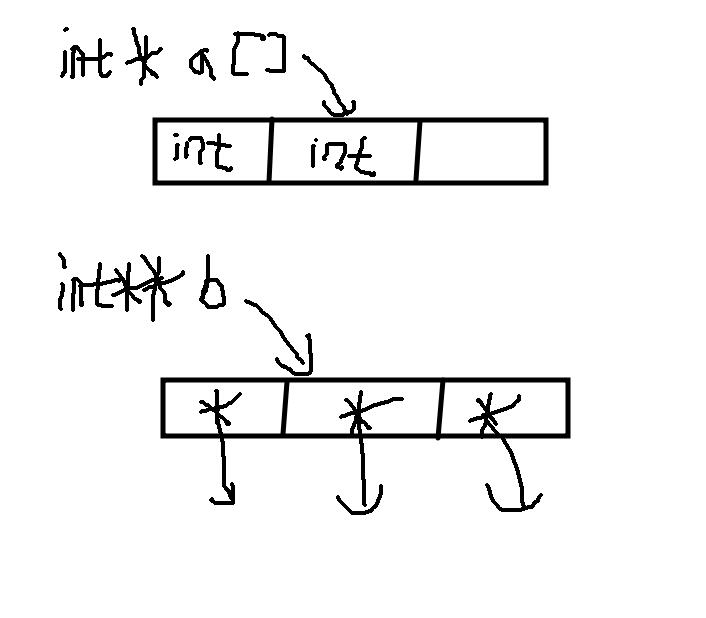 int * a []
int int
int** b
* * *